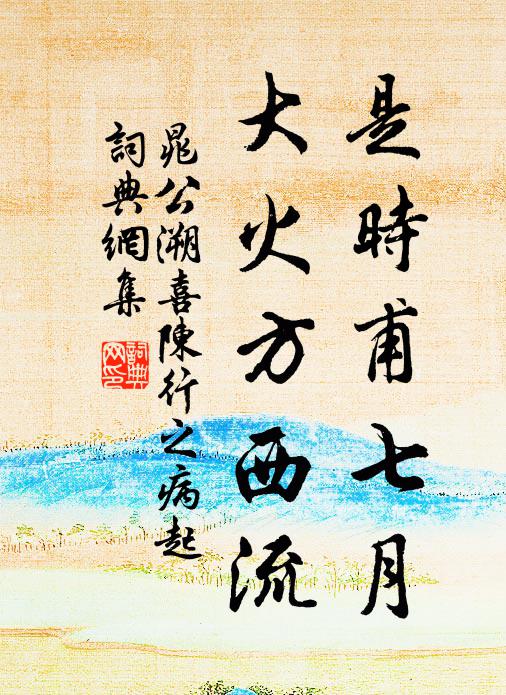 是時甫七月
大火方西流
晁公溯喜陳行之病起
詞典網集
詞典
网印